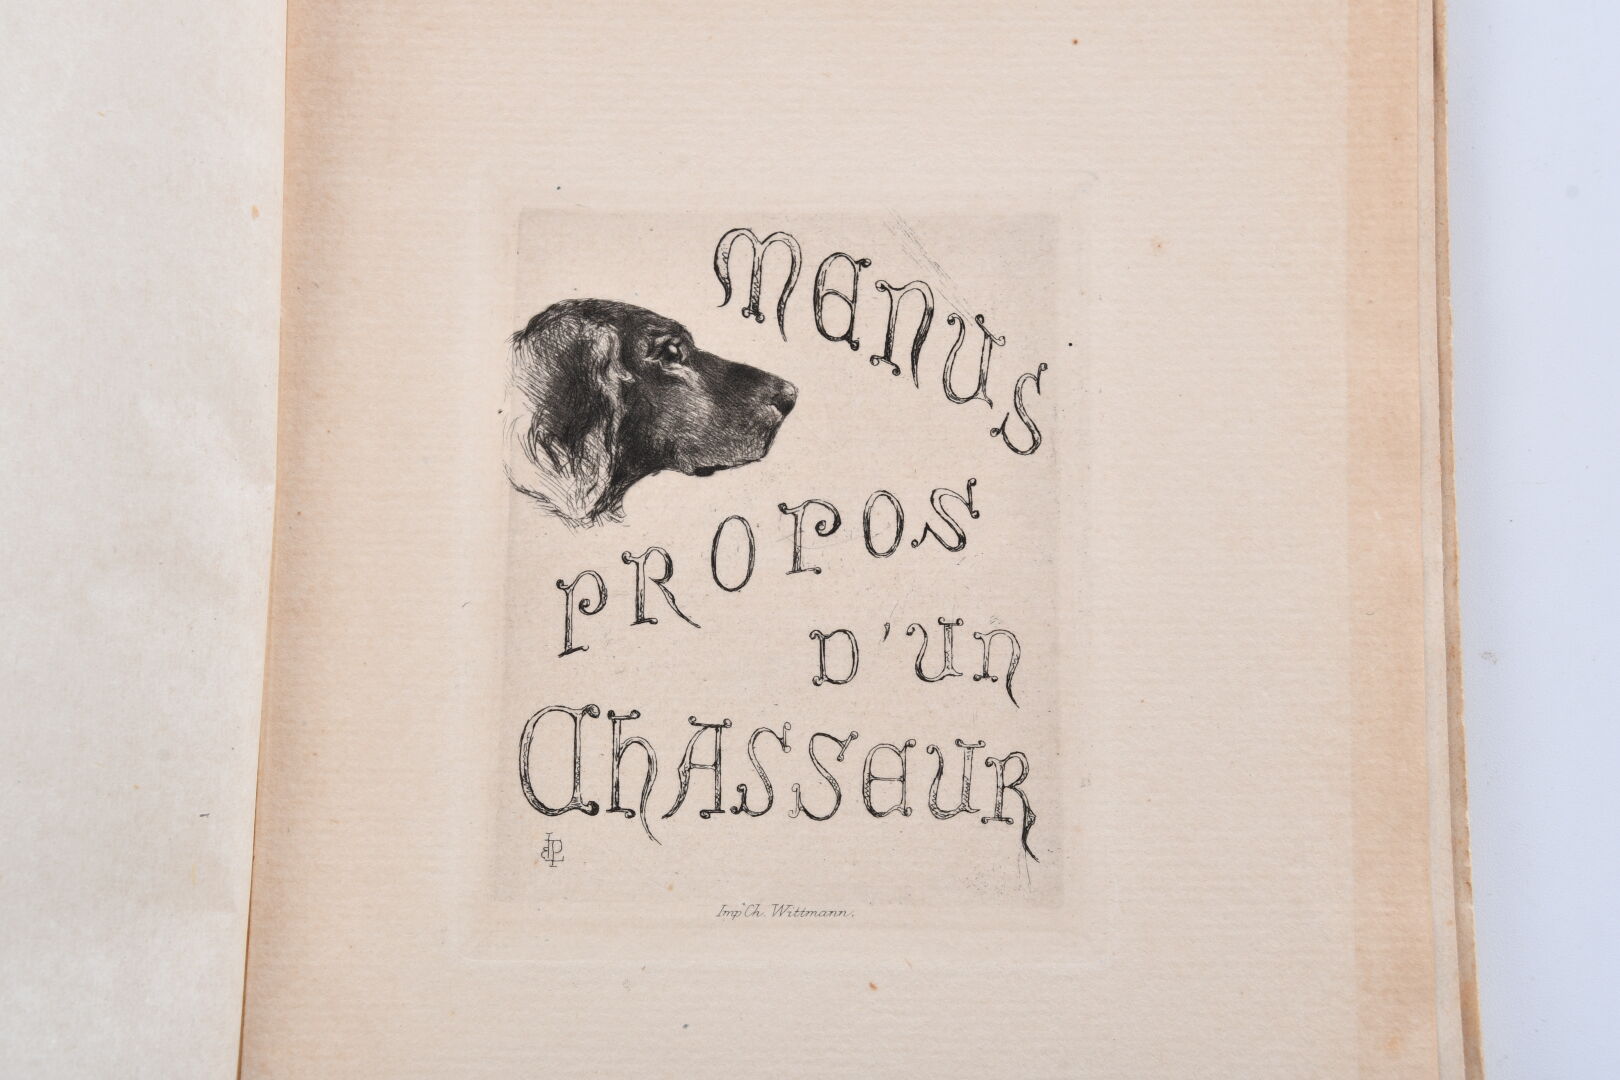 MENUS
PROPOS
D'UN
CHASSEUR
Imp. Ch. Wittmann.